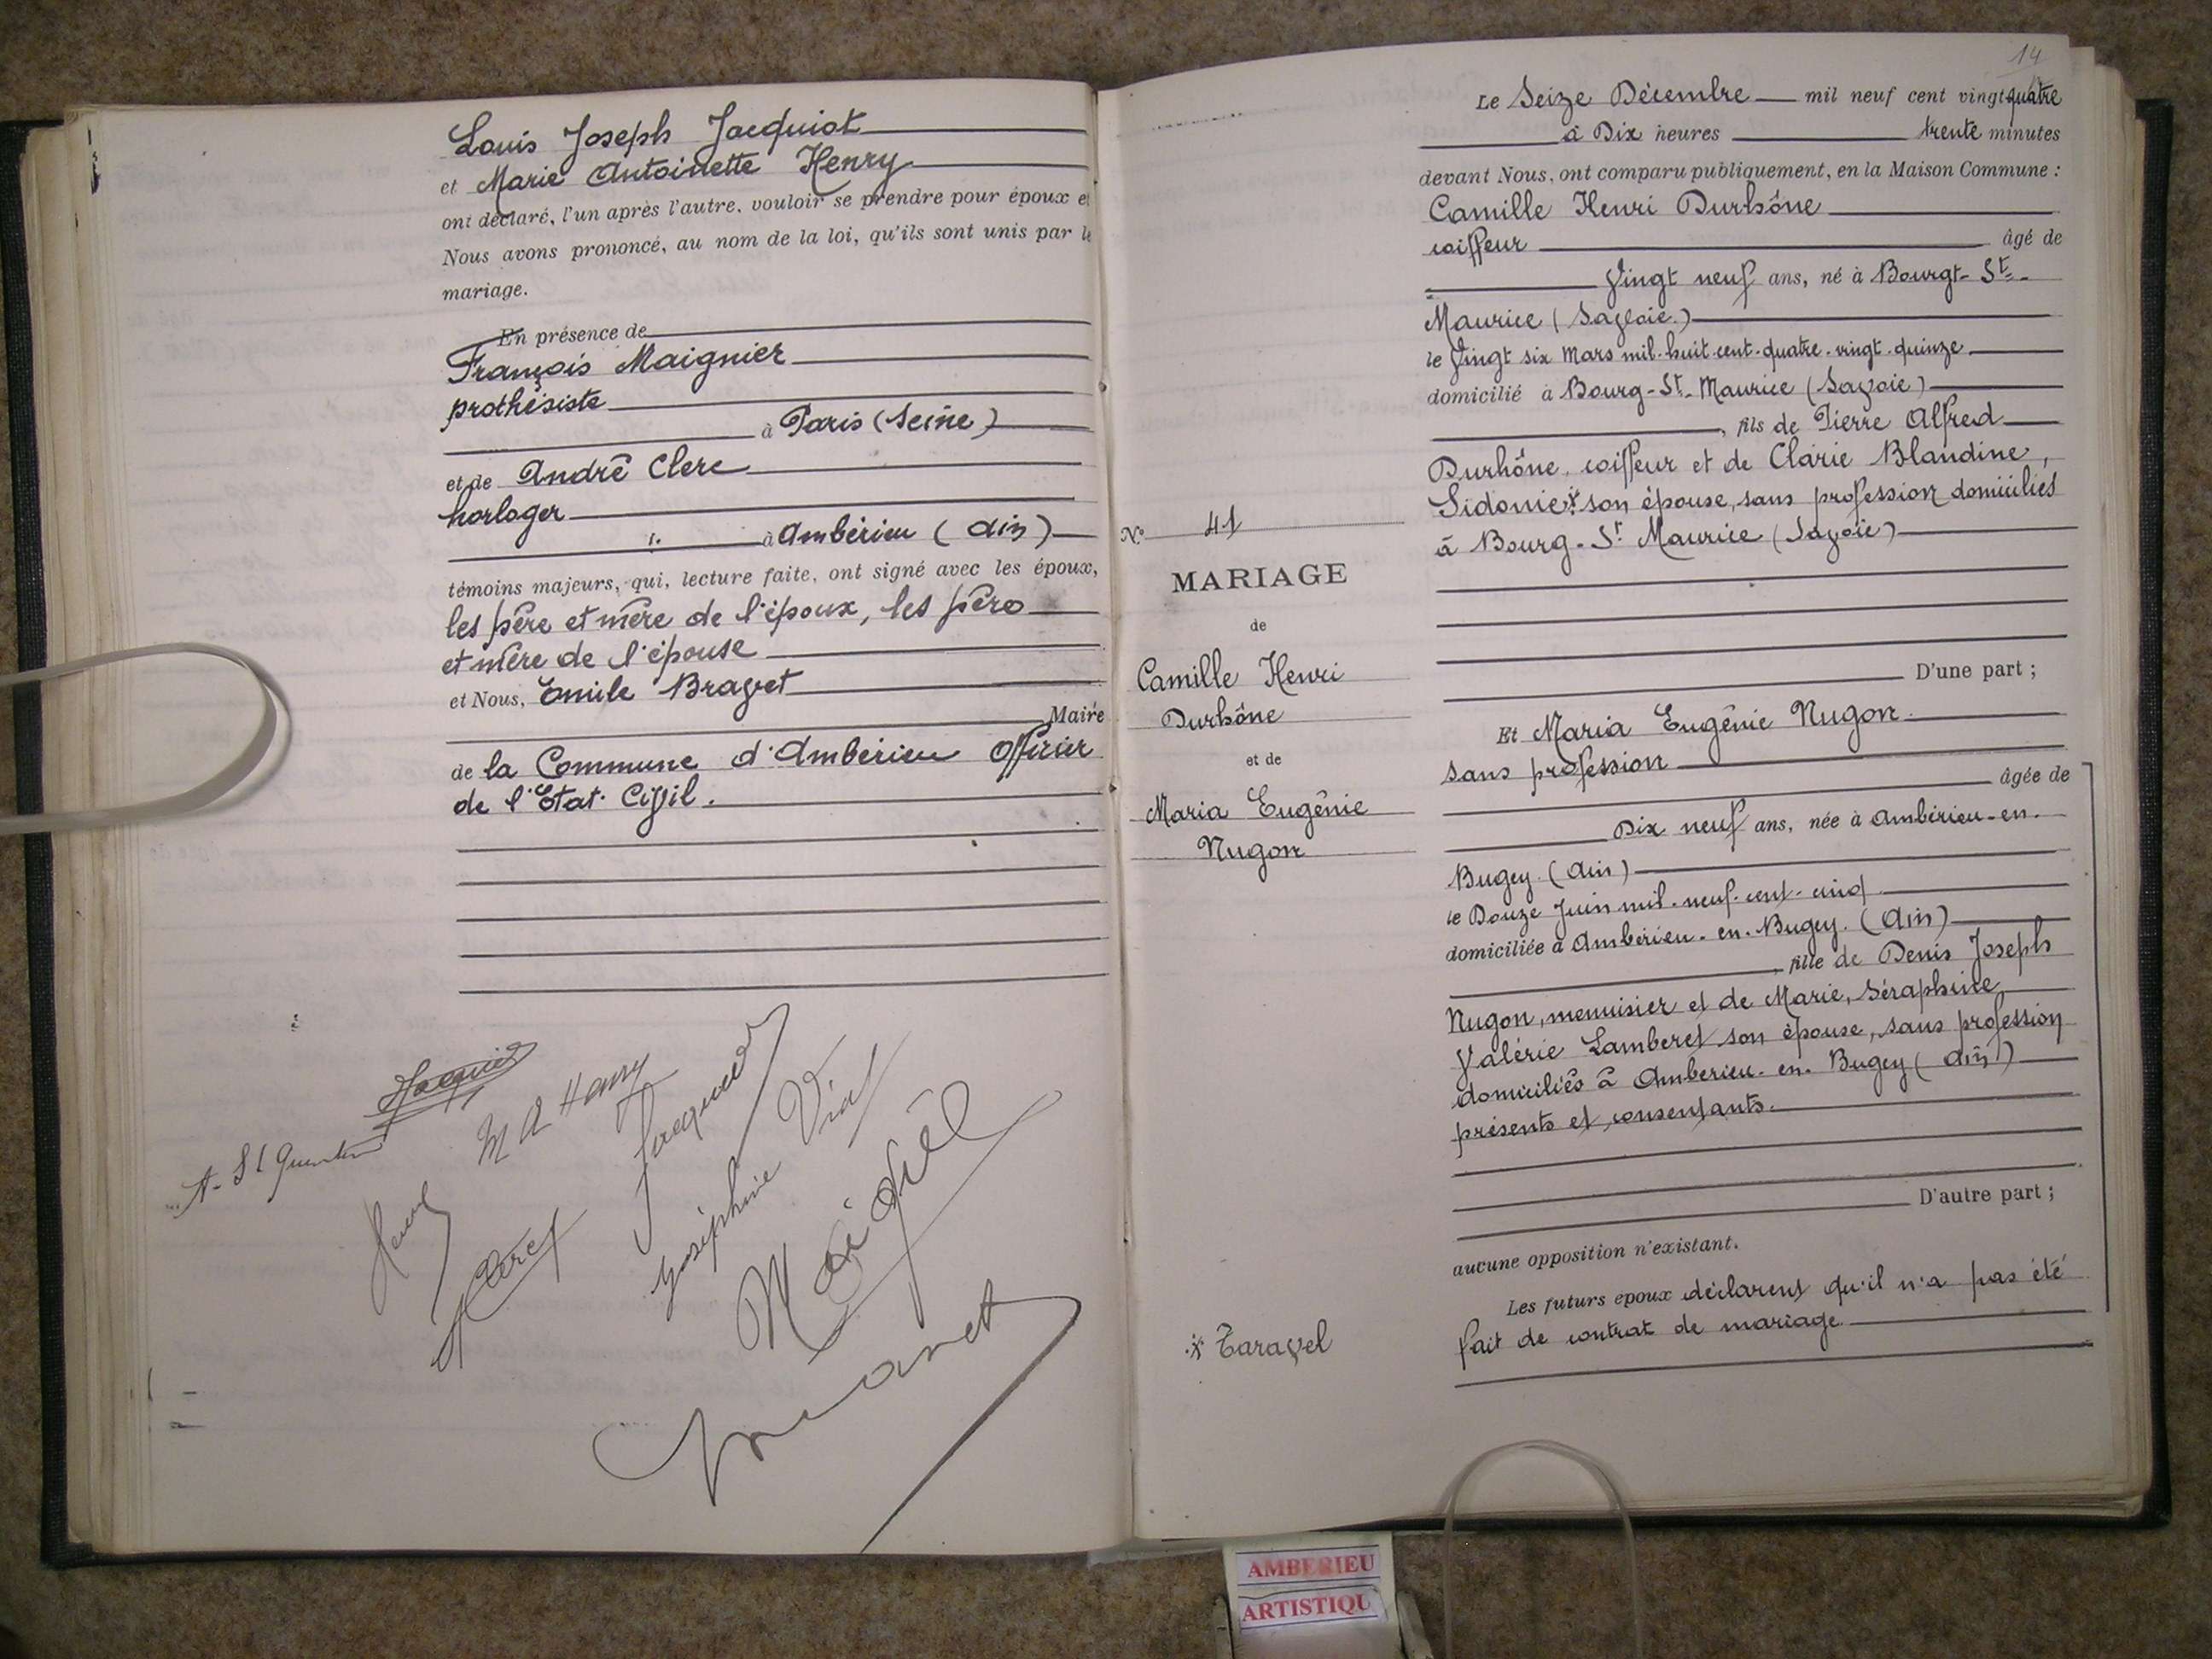 Louis Joseph Jacquiot
et Marie Antoinette Henry
ont déclaré, l'un après l'autre, vouloir se prendre pour époux et
Nous avons prononcé, au nom de la loi, qu'ils sont unis par le
mariage.
En présence de
François Maignier
prothésiste
à Paris (Seine)
et de André Clerc
horloger
à Ambérieu (Ain)
témoins majeurs, qui, lecture faite, ont signé avec les époux,
les père et mère de l'époux, les père
et mère de l'épouse
et Nous, Emile Bravet
Maire
de la Commune d'Ambérieu Officier
de l'Etat Civil.
M A Henry
A. St Quentin
Joséphine Vial
14
N° 41
MARIAGE
de
Camille Henri
Durhône
et de
Maria Eugénie
Nugon
Le Seize Décembre mil neuf cent vingt quatre
à Dix heures trente minutes
devant Nous, ont comparu publiquement, en la Maison Commune :
Camille Henri Durhône
coiffeur âgé de
Vingt neuf ans, né à Bourgt-St-
Maurice (Savoie)
le Vingt six Mars mil-huit-cent-quatre-vingt-quinze
domicilié à Bourg-St-Maurice (Savoie)
, fils de Pierre Alfred
Durhône, coiffeur et de Clarie Blandine,
Sidonie x son épouse, sans profession domiciliés
à Bourg-St Maurice (Savoie)
D'une part ;
Et Maria Eugénie Nugon
sans profession
âgée de
Dix neuf ans, née à Ambérieu-en-
Bugey (Ain)
le Douze Juin mil-neuf-cent-cinq
domiciliée à Ambérieu-en-Bugey (Ain)
, fille de Denis Joseph
Nugon, menuisier et de Marie, Séraphine
Valérie Lamberet son épouse, sans profession
domiciliés à Ambérieu-en-Bugey (Ain)
présents et consentants.
D'autre part ;
aucune opposition n'existant.
Les futurs époux déclarent qu'il n'a pas été
fait de contrat de mariage
x Taravel
AMBERIEU
ARTISTIQU